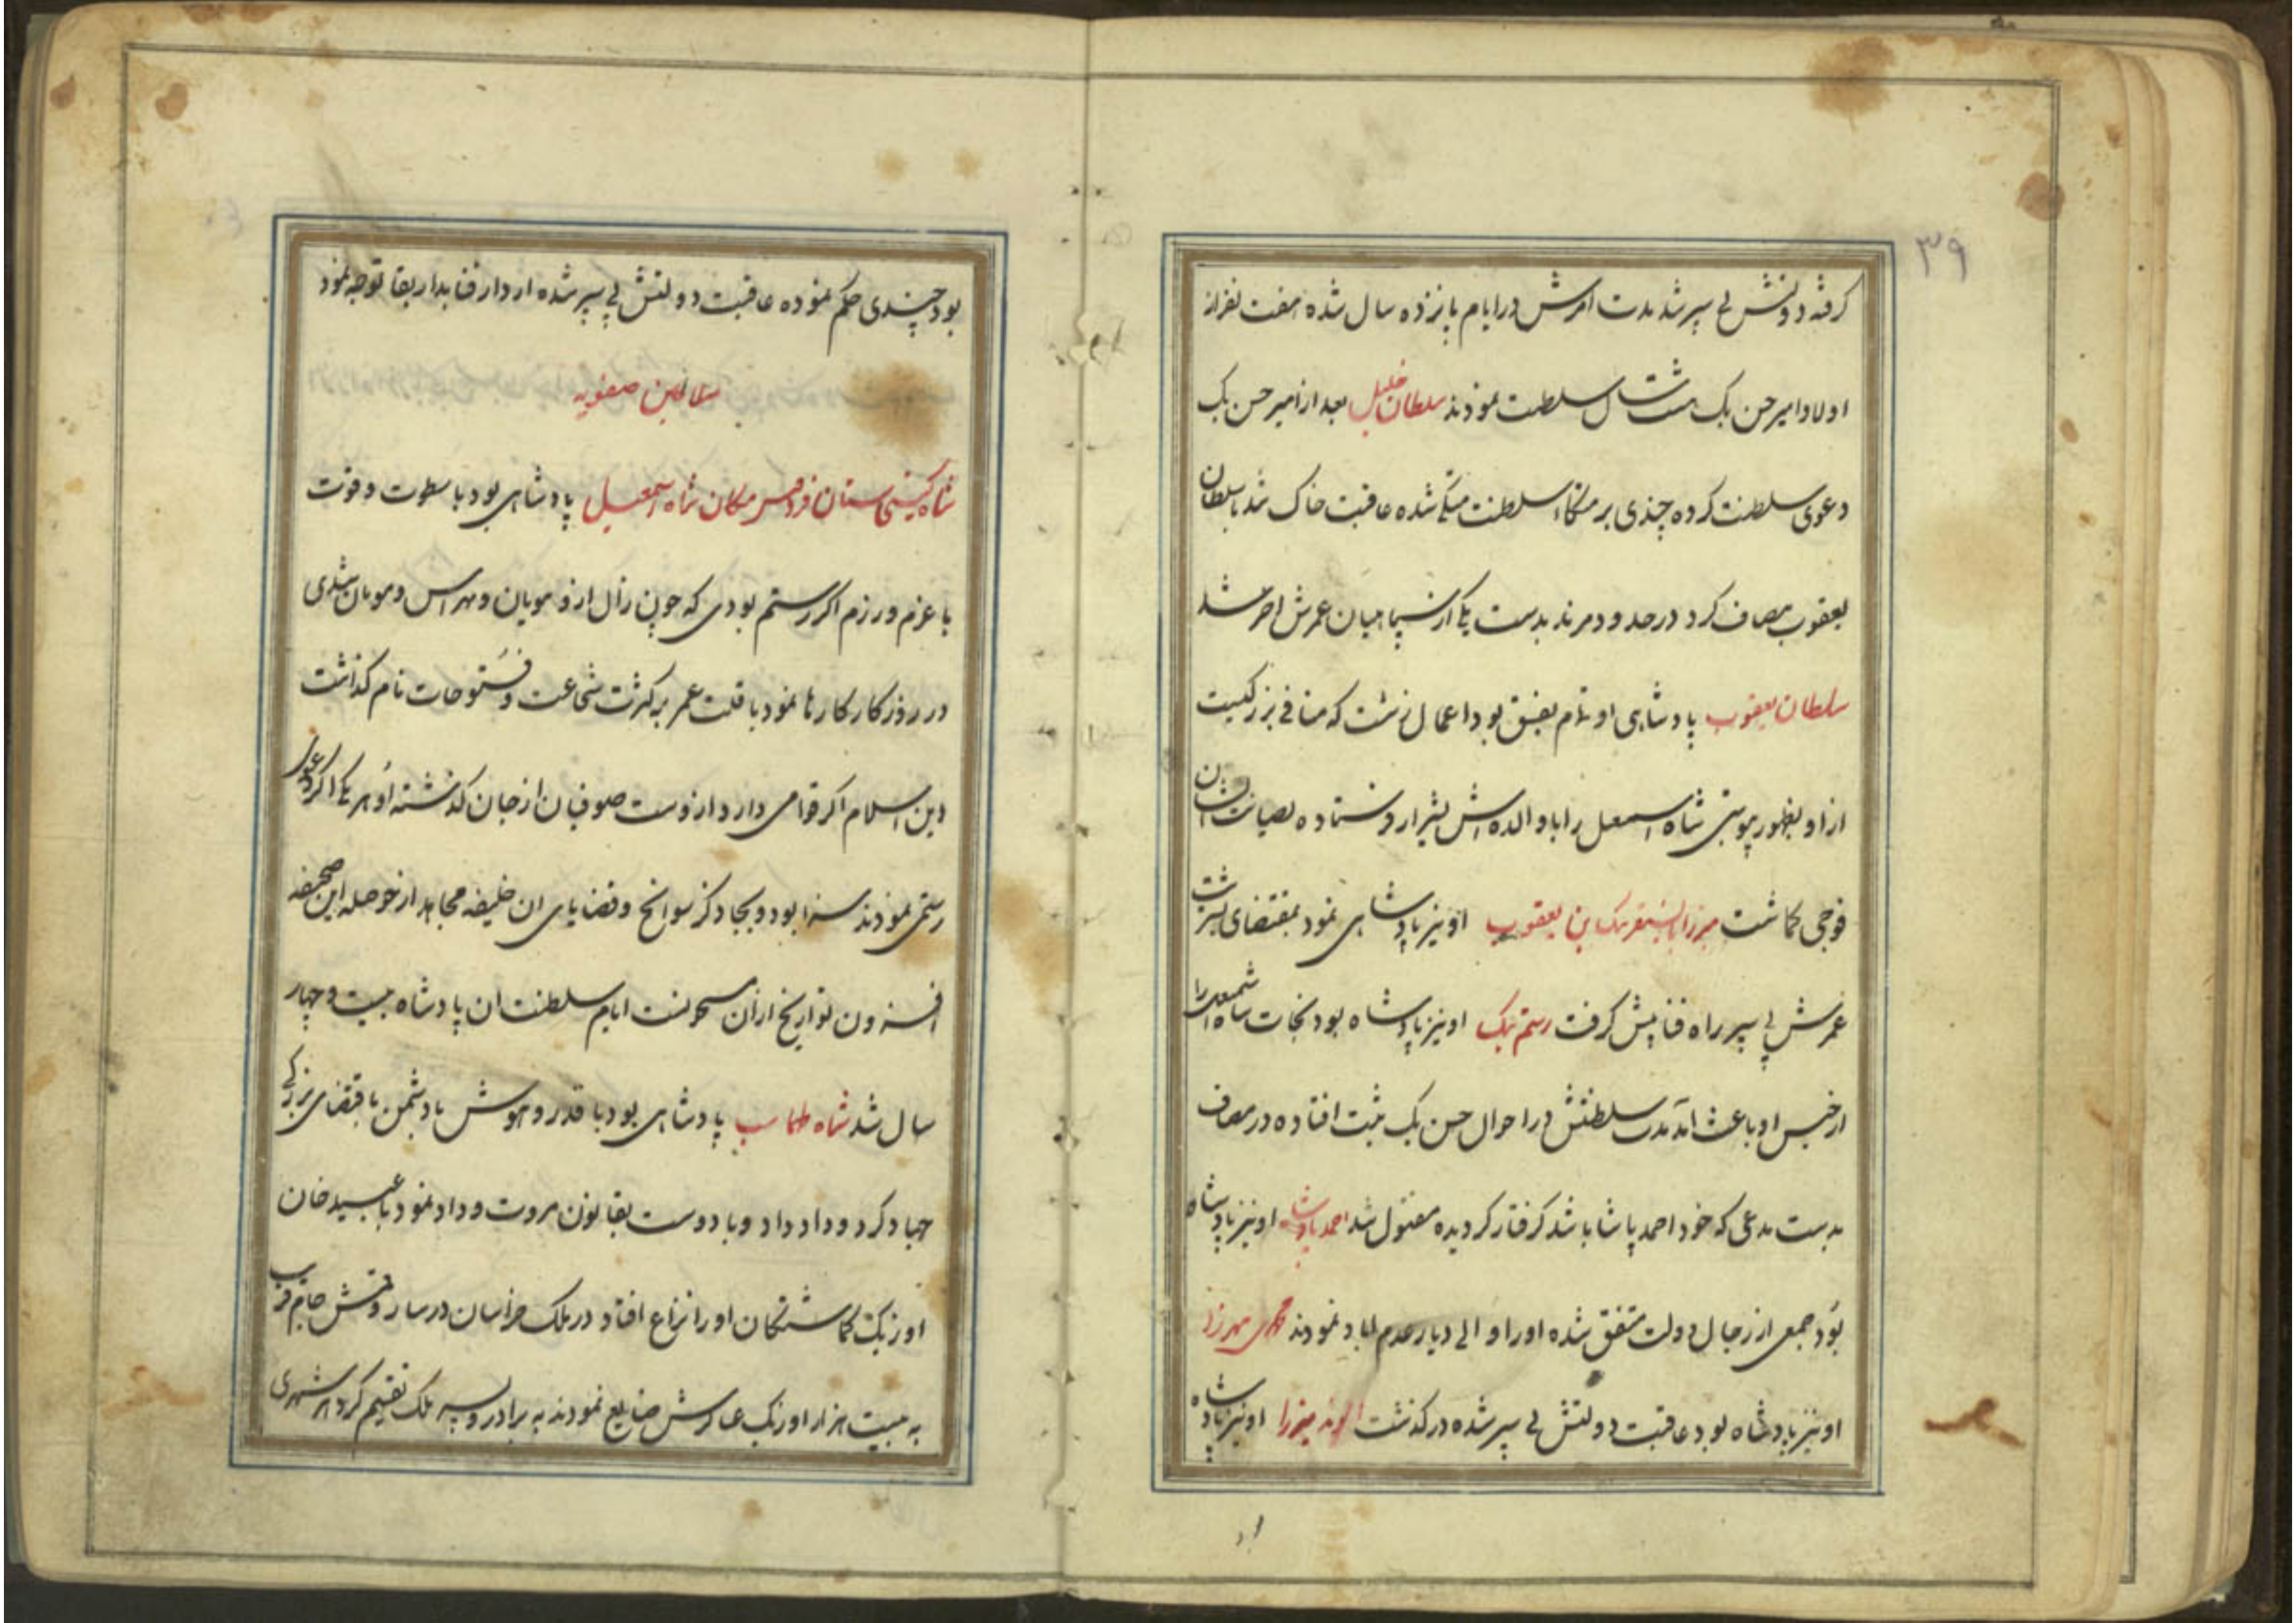 ۳۹
کرفته دولتش پی سپر شد مدت امرش در ایام پانزده سال شده هفت نفر از
اولاد امیر حسن بک هشت سال سلطنت نمودند سلطان خلیل بعد از امیر حسن بک
دعوی سلطنت کرده چندی بر متکاء سلطنت متکی شده عاقبت خاک شد با سلطان
یعقوب مصاف کرد در حدود مرند بدست یکی از سپاهیان عمرش اخر شد
سلطان یعقوب پادشاهی او تمام بفسق بود اعمال زشت که منافی بزرکیست
از او بظهور پیوستی شاه اسمعیل را با والده اش بشیراز فرستاده بصیانت ایشان
فوجی کماشت میرزا بایسنقر بک بن یعقوب او نیز پادشاهی نمود بمقتضای سرشت
عمرش پی سپر راه فنا پیش کرفت رستم بک او نیز پادشاه بود نجات شاه اسمعیل را
از حبس او باعث آمد مدت سلطنتش در احوال حسن بک ثبت افتاده در مصاف
بدست مدعی که خود احمد پاشا باشد کرفتار کردیده مقتول شد احمد پادشاه او نیز پادشاه
بود جمعی از رجال دولت متفق شده او را والی دیار عدم اباد نمودند محمدی میرزا
او نیز پادشاه بود عاقبت دولتش پی سپر شده درکذشت الوند میرزا او نیز پادشاه
بود چندی حکم نموده عاقبت دولتش پی سپر شده از دار فنا بدار بقا توجه نمود
سلاطین صفویه
شاه کیتی ستان فردوس مکان شاه اسمعیل پادشاهی بود با سطوت و قوت
با عزم و رزم اکر رستم بودی که چون زال از و مویان و هراس و مویان شدی
در روزکار کارها نمود با قلت عمر بر کثرت شجاعت و فتوحات نام کذاشت
دین اسلام اکر قوامی دارد از وست صوفیان از جان کذشته او هر یکی اکر دعوی
رستمی نمودند سزا بود و بجا ذکر سوانح و قضایای ان خلیفه مجاهد از حوصله این صحیفه
افزون تواریخ از ان مسحونست ایام سلطنت ان پادشاه بیست و چهار
سال شد شاه طهماسب پادشاهی بود با قدر و هوش با دشمن باقتضای بزرکی
جهاد کرد و داد داد و با دوست بقانون مروت وداد نمود با عبید خان
اوزبک کماشتکان او را نزاع افتاد در ملک خراسان در سار و قمش جام قرب
به بیست هزار اوزبک عساکرش ضایع نمودند به برادر و پسر ملک تقسیم کرد هر شهری